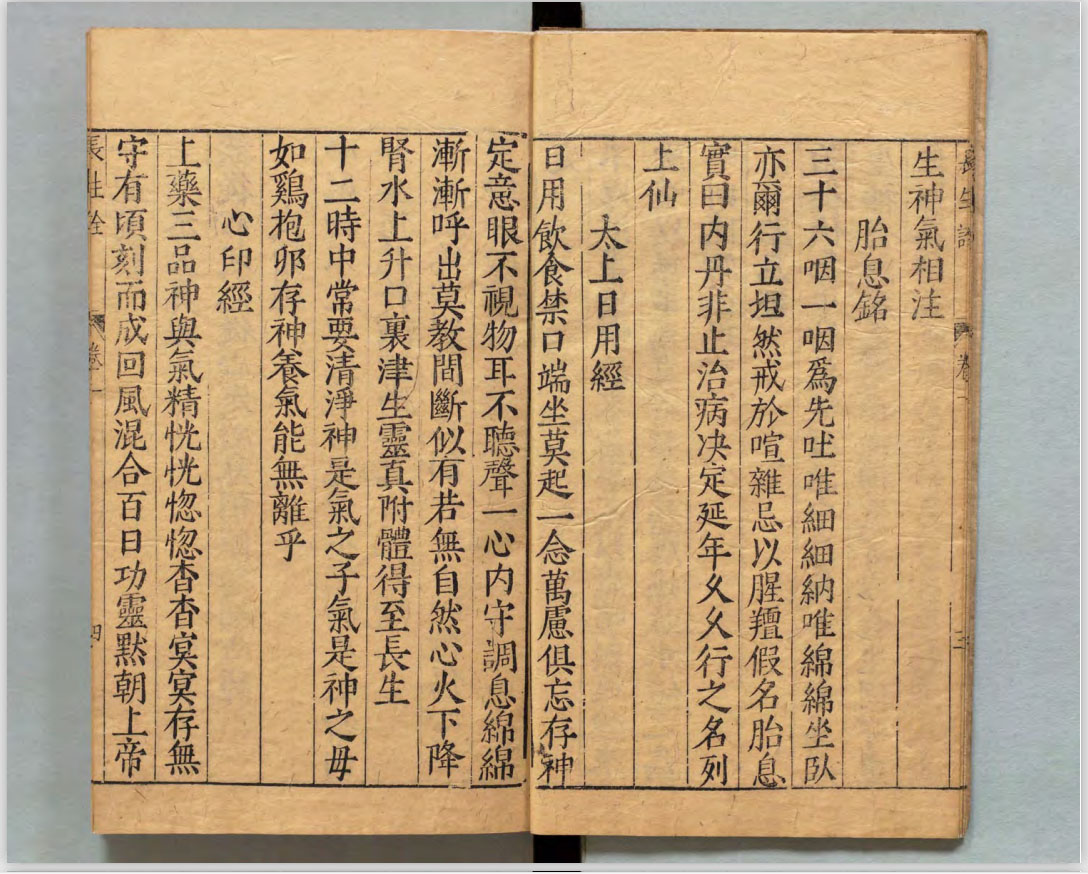 長生詮 卷一 三
生神氣相注
胎息銘
三十六咽一咽爲先吐唯細細納唯綿綿坐臥
亦爾行立坦然戒於喧雜忌以腥羶假名胎息
實曰内丹非止治病决定延年久久行之名列
上仙
太上日用經
日用飲食禁口端坐莫起一念萬慮俱忘存神
定意眼不視物耳不聽聲一心内守調息綿綿
漸漸呼出莫教間斷似有若無自然心火下降
腎水上升口裏津生靈真附體得至長生
十二時中常要清淨神是氣之子氣是神之母
如鷄抱卵存神養氣能無離乎
心印經
上藥三品神與氣精恍恍惚惚杳杳冥冥存無
守有頃刻而成回風混合百日功靈默朝上帝
長生詮 卷一 四